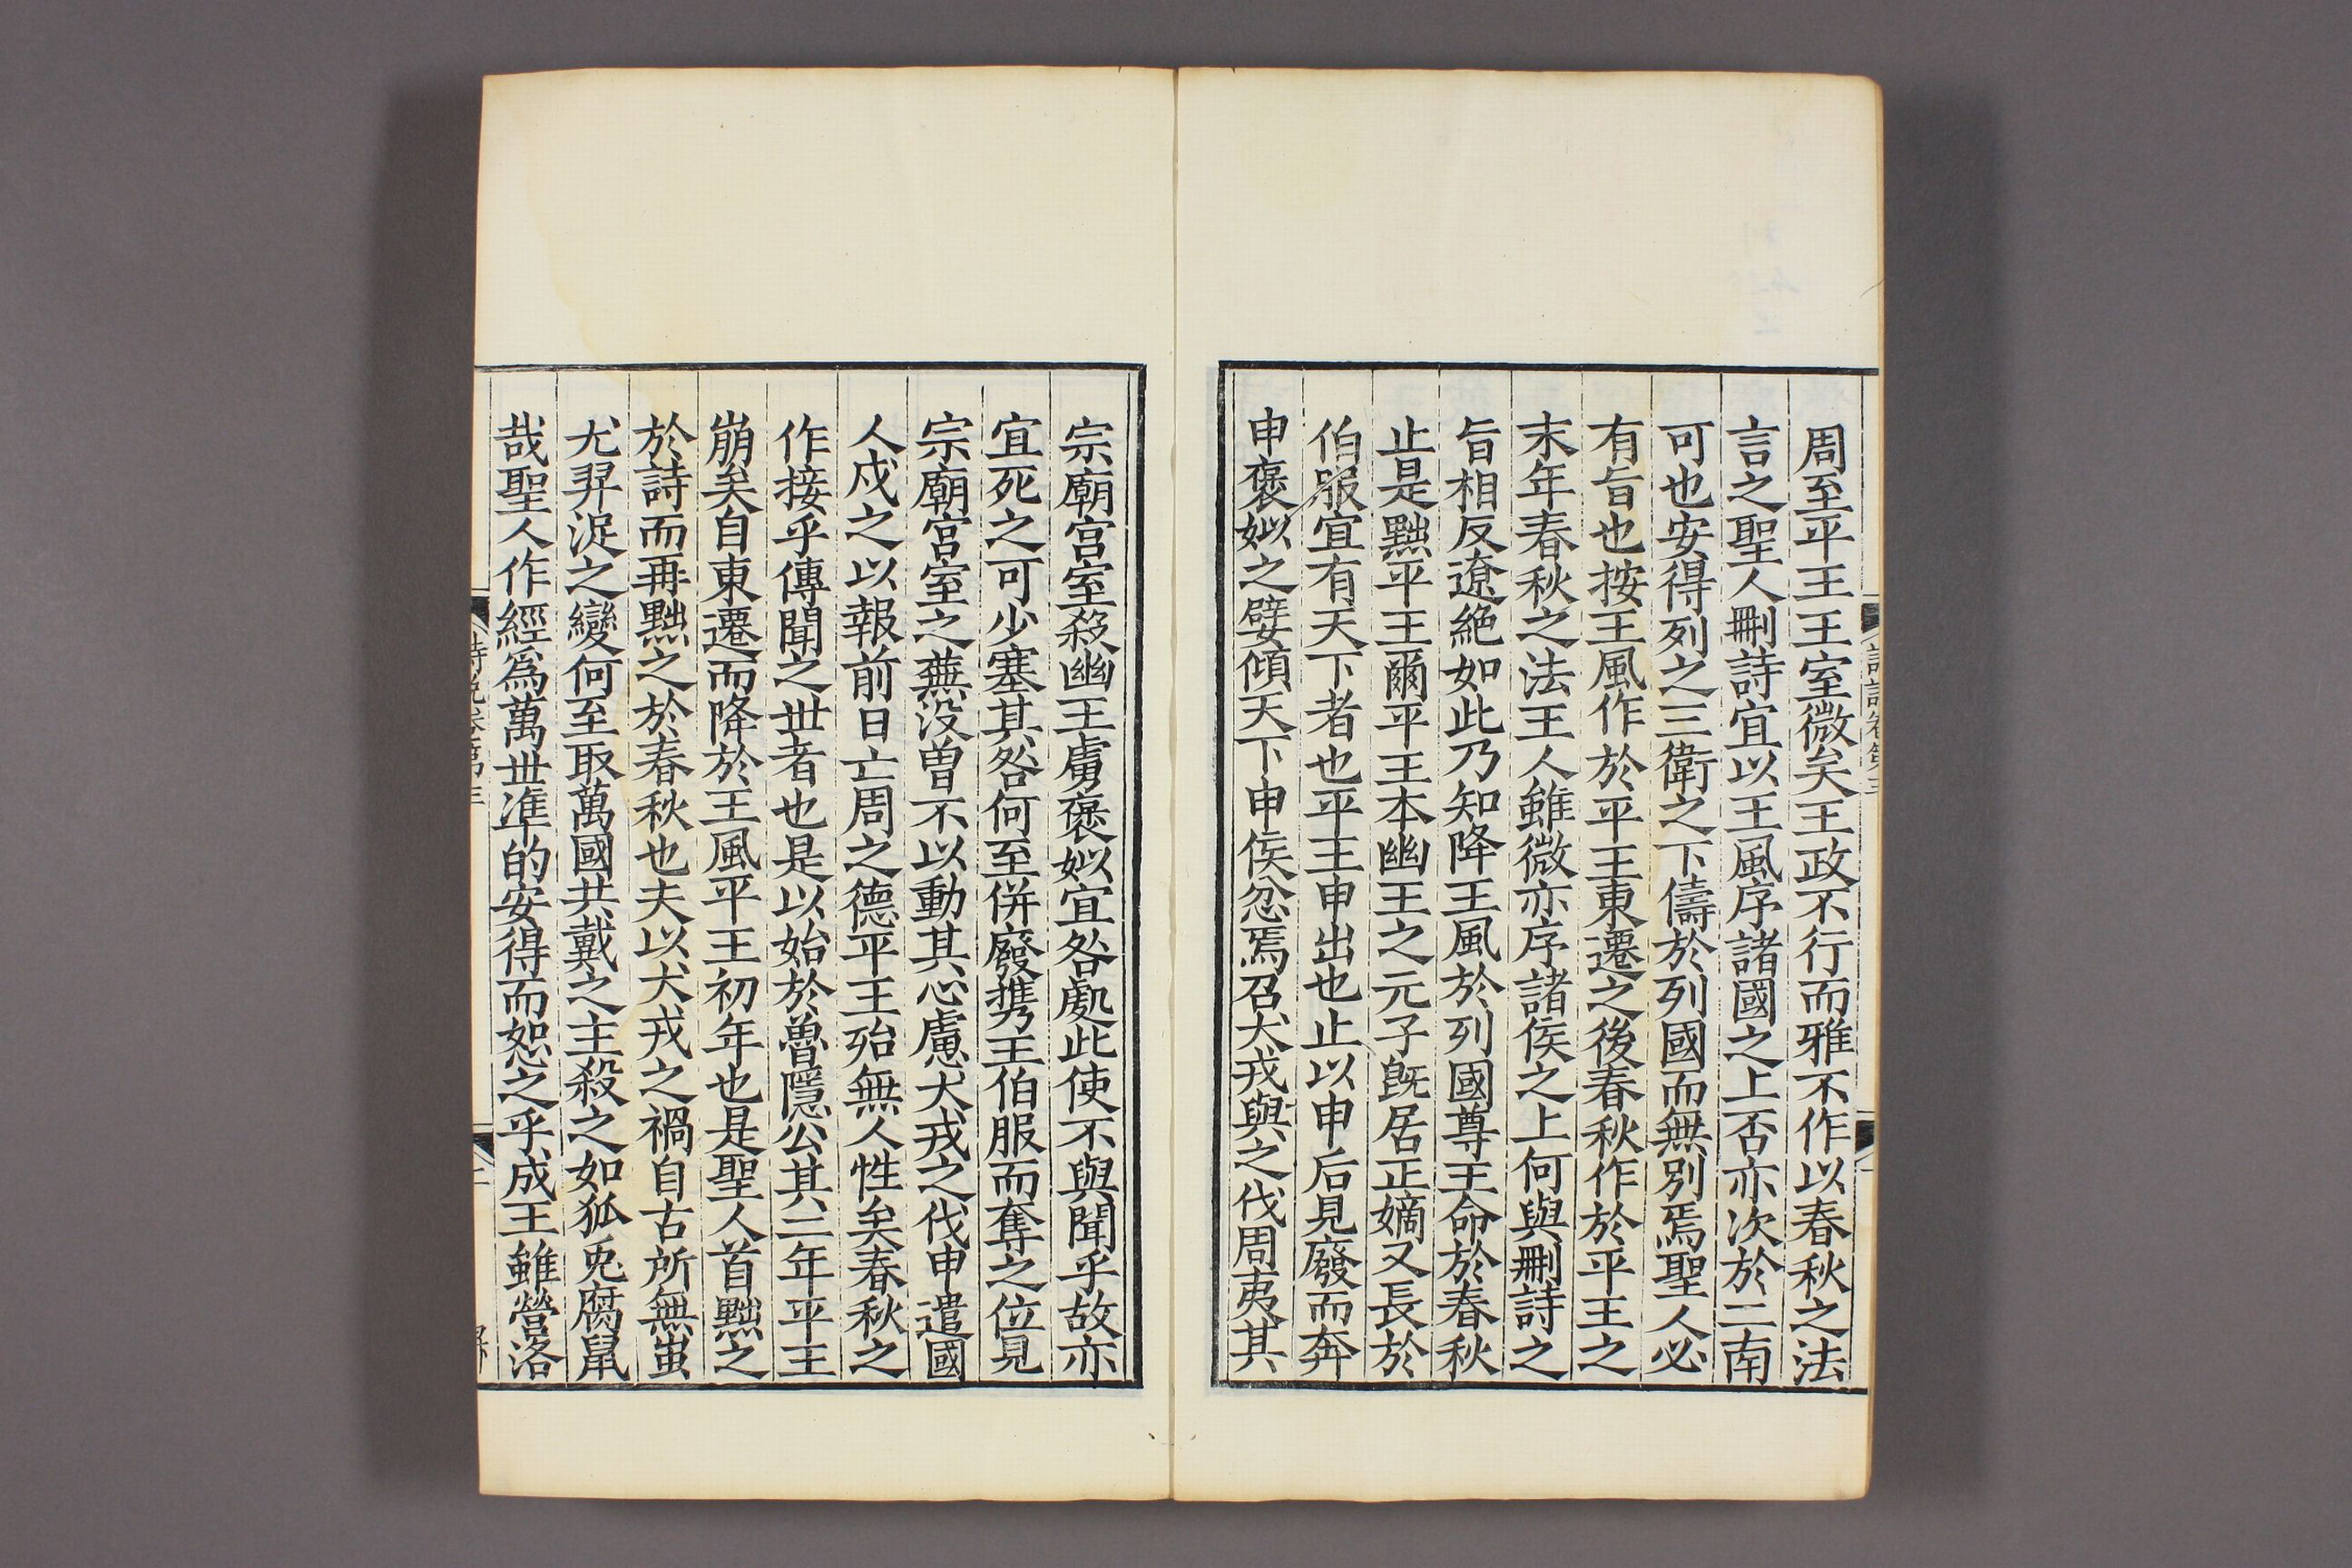 周至平王王室微矣王政不行而雅不作以春秋之法
言之聖人刪詩宜以王風序諸國之上否亦次於二南
可也安得列之三衛之下儔於列國而無別焉聖人必
有旨也按王風作於平王東遷之後春秋作於平王之
末年春秋之法王人雖微亦序諸侯之上何與刪詩之
旨相反遼絶如此乃知降王風於列國尊王命於春秋
止是黜平王爾平王本幽王之元子旣居正嫡又長於
伯服宜有天下者也平王申出也止以申后見廢而奔
申褒姒之嬖傾天下申侯忿焉召犬戎與之伐周夷其
宗廟宫室殺幽王虜褒姒宜咎處此使不與聞乎故亦
宜死之可少塞其咎何至併廢携王伯服而奪之位見
宗廟宫室之蕪没曽不以動其心慮犬戎之伐申遣國
人戍之以報前日亡周之德平王殆無人性矣春秋之
作接乎傳聞之丗者也是以始於魯隱公其三年平王
崩矣自東遷而降於王風平王初年也是聖人首黜之
於詩而再黜之於春秋也夫以犬戎之禍自古所無蚩
尤羿浞之變何至取萬國共戴之主殺之如狐兎腐鼠
哉聖人作經爲萬丗準的安得而恕之乎成王雖營洛
詩說卷第三